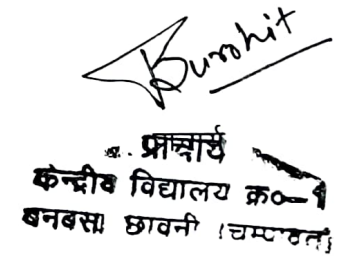 Purohit
प्राचार्य
केन्द्रीय विद्यालय क्र०-1
बनबसा छावनी (चम्पावत)